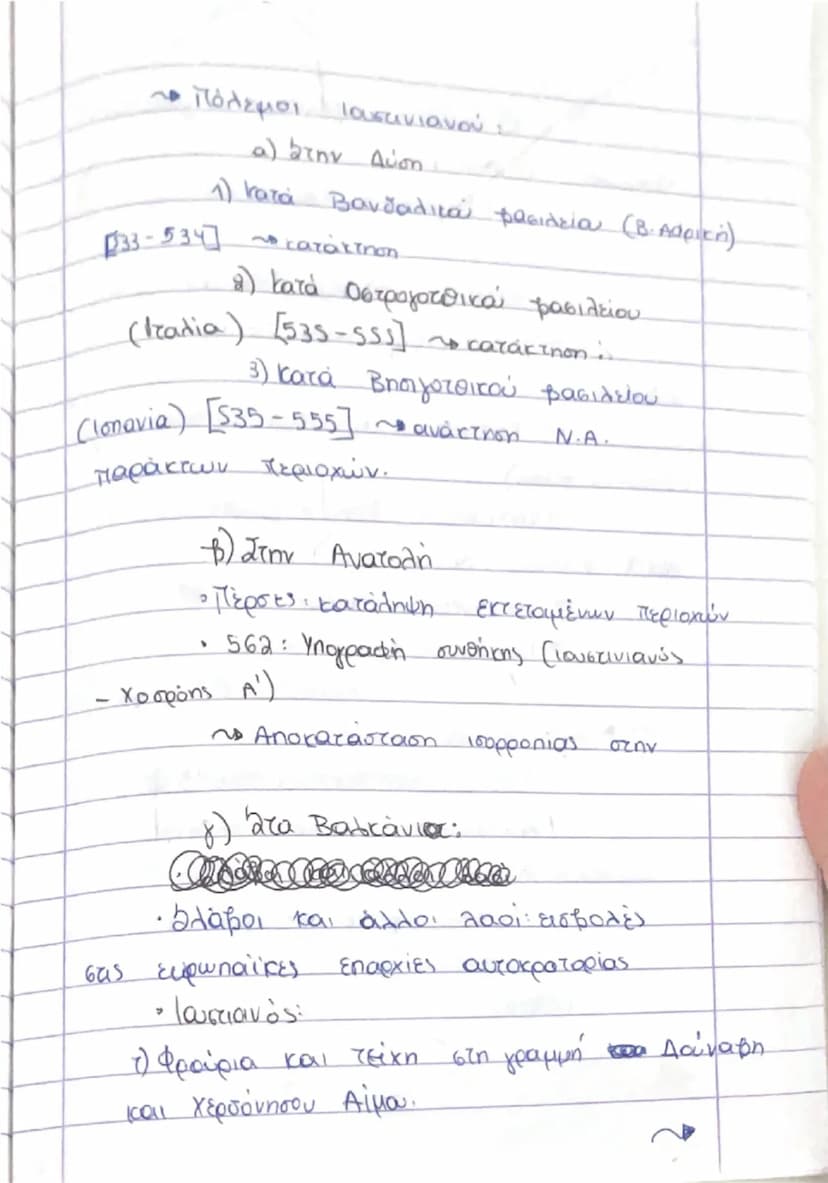 ~ Πόλεμοι Ιουστινιανού:
α) Στην Δύση
1) κατά Βανδαλικού βασιλεία (Β. Αφρική)
[533-534] ~ κατάκτηση
2) κατά Οστρογοτθικού βασιλείου
(Ιταλία) [535-555] ~ κατάκτηση:
3) κατά Βησιγοτθικού βασιλείου
(Ισπανία) [535-555] ~ ανάκτηση Ν.Α.
παράκτιων περιοχών.
β) Στην Ανατολή
• Πέρσες: κατάληψη εκτεταμένων περιοχών
• 562: Υπογραφή συνθήκης (Ιουστινιανός
- Χοσρόης Α')
~ Αποκατάσταση ισορροπίας στην
γ) Στα Βαλκάνια:
• Σλάβοι και άλλοι λαοί: εισβολές
στις ευρωπαϊκες επαρχίες αυτοκρατορίας
• Ιουστιανός:
τ) Φρούρια και τείχη στη γραμμή Δούναβη
και Χερσόνησου Αίμου.